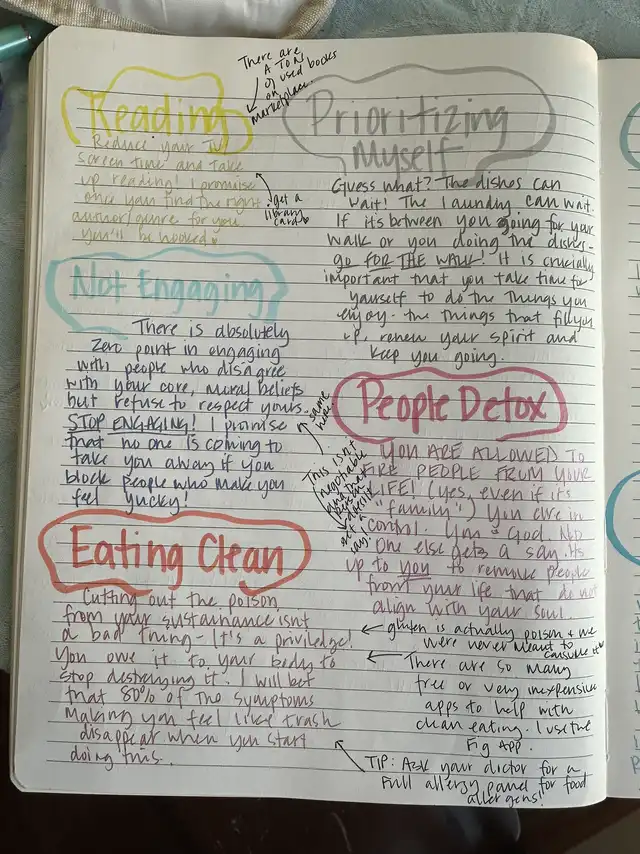 Reading
There are
A TON
of used books
on
marketplace.
Reduce your TV
screen time and take
up reading! I promise
once you find the right
author/genre for you
you'll be hooked
get a
library
card
Prioritizing
Myself
Guess what? The dishes can
wait! The laundry can wait.
If it's between you going for your
walk or you doing the dishes-
go FOR THE WALK! It is crucially
important that you take time for
yourself to do the things you
enjoy- the things that fill you
up, renew your spirit and
keep you going.
Not Engaging
There is absolutely
zero point in engaging
with people who disagree
with your core, moral beliefs
but refuse to respect yours.
STOP ENGAGING! I promise
that no one is coming to
take you away if you
block people who make you
feel yucky!
same
here
People Detox
YOU ARE ALLOWED TO
FIRE PEOPLE FROM YOUR
LIFE! (yes, even if it's
"family") You are in
control. You + God. No
one else gets a say. It's
up to you to remove people
from your life that do not
align with your soul.
This isn't
negotiable
get a
say.
Eating Clean
Cutting out the poison
from your sustainance isn't
a bad thing- It's a priviledge!
You owe it to your body to
stop destroying it. I will bet
that 80% of the symptoms
making you feel like trash
disappear when you start
doing this.
gluten is actually poison & we
were never meant to
consume it
There are so many
free or very inexpensive
apps to help with
clean eating. I use the
Fig App.
TIP: Ask your doctor for a
Full allergy panel for food
allergens!